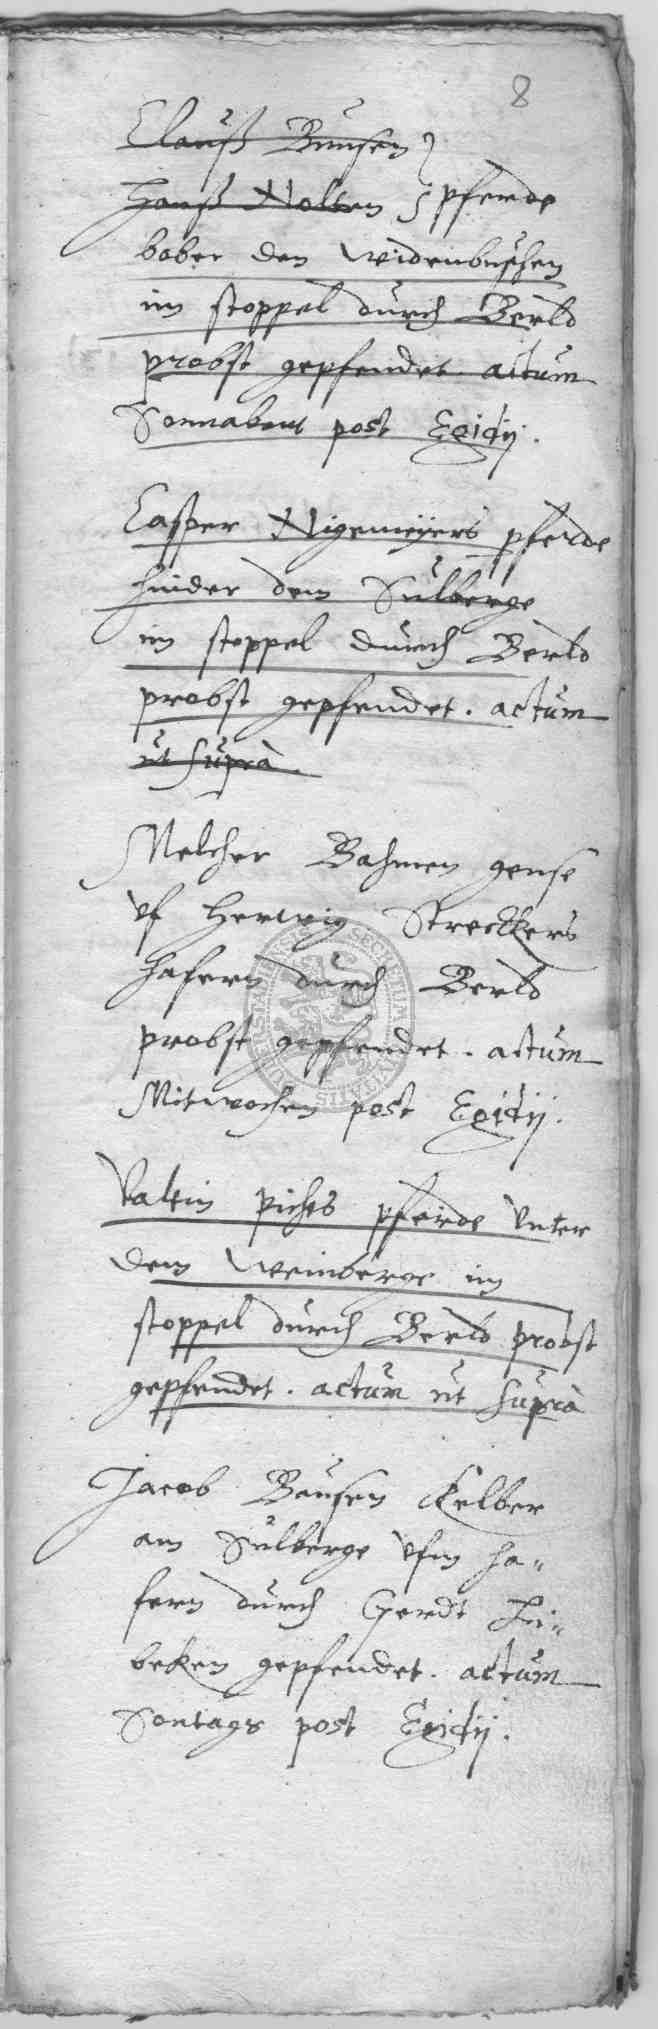 8
Clauß Bausen }
Hanß Nolten } pferde
bober den widenbuschen
im stoppel durch Berld
probst gepfendet. actum
Sonnabent post Egidij.
Casper Nigemeyers pferde
hinder dem Sulberge
im stoppel durch Berld
probst gepfendet. actum
ut supra.
Melcher Bahmen gense
vf Herwig Streckers
hafern durch Berld
probst gepfendet. actum
Mitwochen post Egidij.
Valtin pichs pferde vnter
dem Weinberge im
stoppel durch Berld probst
gepfendet. actum ut supra
Jacob Bausen Kelber
am Sulberge vfm ha„
fern durch Gerdt Li„
beken gepfendet. actum
Sontags post Egidij.